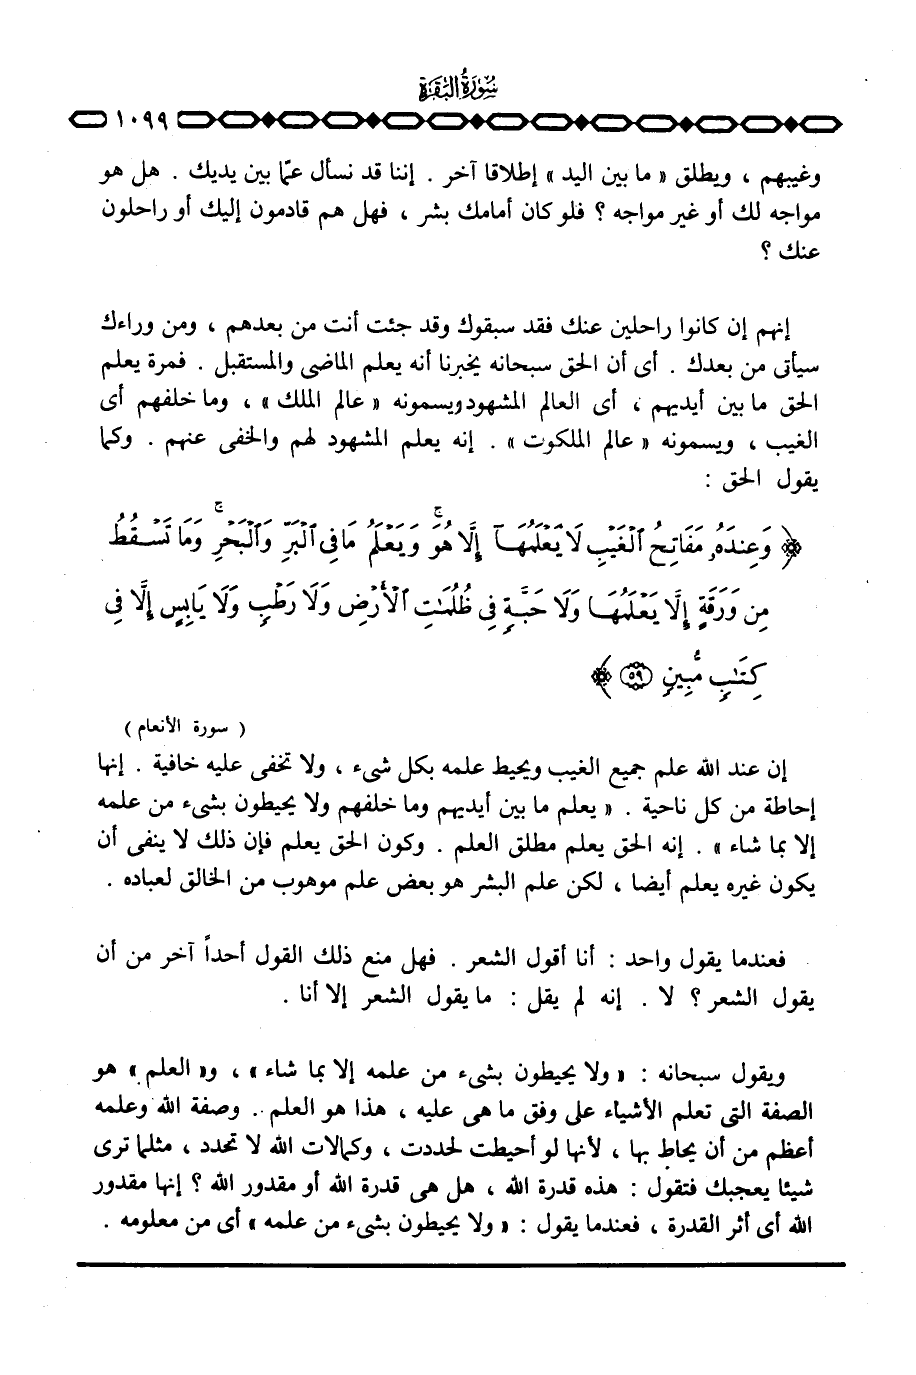 سورة البقرة
١٠٩٩
وغيبهم ، ويطلق « ما بين اليد » إطلاقا آخر . إننا قد نسأل عمّا بين يديك . هل هو
مواجه لك أو غير مواجه ؟ فلو كان أمامك بشر ، فهل هم قادمون إليك أو راحلون
عنك ؟
إنهم إن كانوا راحلين عنك فقد سبقوك وقد جئت أنت من بعدهم ، ومن وراءك
سيأتى من بعدك . أى أن الحق سبحانه يخبرنا أنه يعلم الماضى والمستقبل . فمرة يعلم
الحق ما بين أيديهم ، أى العالم المشهود ويسمونه « عالم الملك » ، وما خلفهم أى
الغيب ، ويسمونه « عالم الملكوت » . إنه يعلم المشهود لهم والخفى عنهم . وكما
يقول الحق :
﴿ وَعِندَهُۥ مَفَاتِحُ ٱلْغَيْبِ لَا يَعْلَمُهَآ إِلَّا هُوَۚ وَيَعْلَمُ مَا فِى ٱلْبَرِّ وَٱلْبَحْرِۚ وَمَا تَسْقُطُ
مِن وَرَقَةٍ إِلَّا يَعْلَمُهَا وَلَا حَبَّةٍ فِى ظُلُمَٰتِ ٱلْأَرْضِ وَلَا رَطْبٍ وَلَا يَابِسٍ إِلَّا فِى
كِتَٰبٍ مُّبِينٍ ٥٩ ﴾
( سورة الأنعام )
إن عند الله علم جميع الغيب ويحيط علمه بكل شىء ، ولا تخفى عليه خافية . إنها
إحاطة من كل ناحية . « يعلم ما بين أيديهم وما خلفهم ولا يحيطون بشىء من علمه
إلا بما شاء » . إنه الحق يعلم مطلق العلم . وكون الحق يعلم فإن ذلك لا ينفى أن
يكون غيره يعلم أيضا ، لكن علم البشر هو بعض علم موهوب من الخالق لعباده .
فعندما يقول واحد : أنا أقول الشعر . فهل منع ذلك القول أحداً آخر من أن
يقول الشعر ؟ لا . إنه لم يقل : ما يقول الشعر إلا أنا .
ويقول سبحانه : « ولا يحيطون بشىء من علمه إلا بما شاء » ، و« العلم » هو
الصفة التى تعلم الأشياء على وفق ما هى عليه ، هذا هو العلم . وصفة الله وعلمه
أعظم من أن يحاط بها ، لأنها لو أحيطت لحددت ، وكمالات الله لا تحدد ، مثلما ترى
شيئا يعجبك فتقول : هذه قدرة الله ، هل هى قدرة الله أو مقدور الله ؟ إنها مقدور
الله أى أثر القدرة ، فعندما يقول : « ولا يحيطون بشىء من علمه » أى من معلومه .